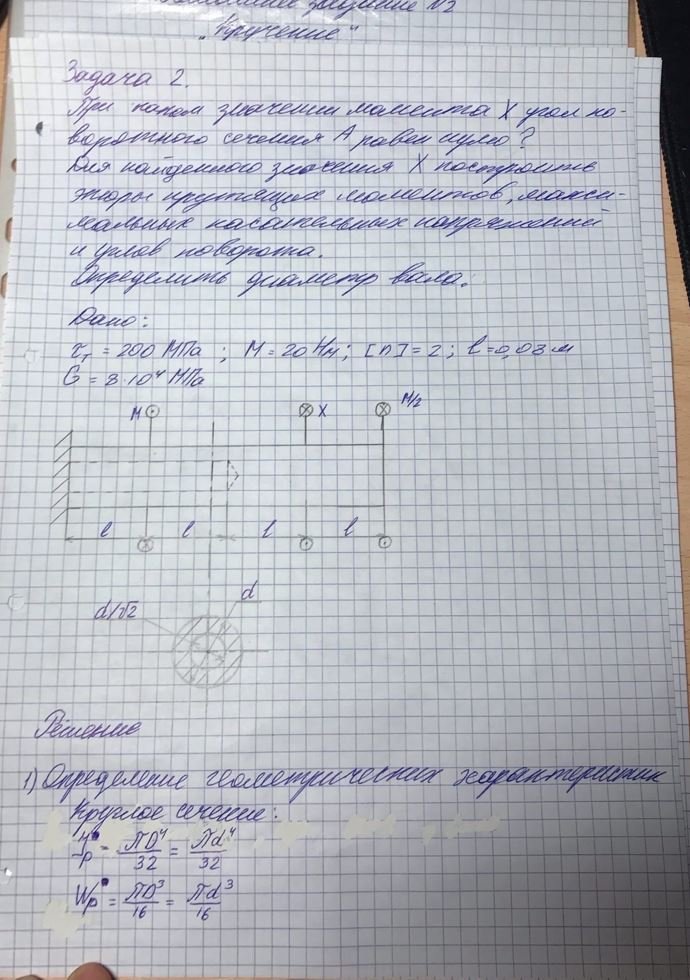 Домашнее задание №2
„Кручение"
Задача 2.
При каком значении момента X угол по-
воротного сечения A равен нулю?
Для найденного значения X построить
эпюры крутящих моментов, макси-
мальных касательных напряжений
и углов поворота.
Определить диаметр вала.
Дано:
τт = 200 МПа ; M = 20 Нм ; [n] = 2 ; l = 0,03 м
G = 8·10⁴ МПа
M X M/2
l l l l
d/√2 d
Решение
1) Определение геометрических характеристик
Круглое сечение:
Jp = πD⁴/32 = πd⁴/32
Wp = πD³/16 = πd³/16